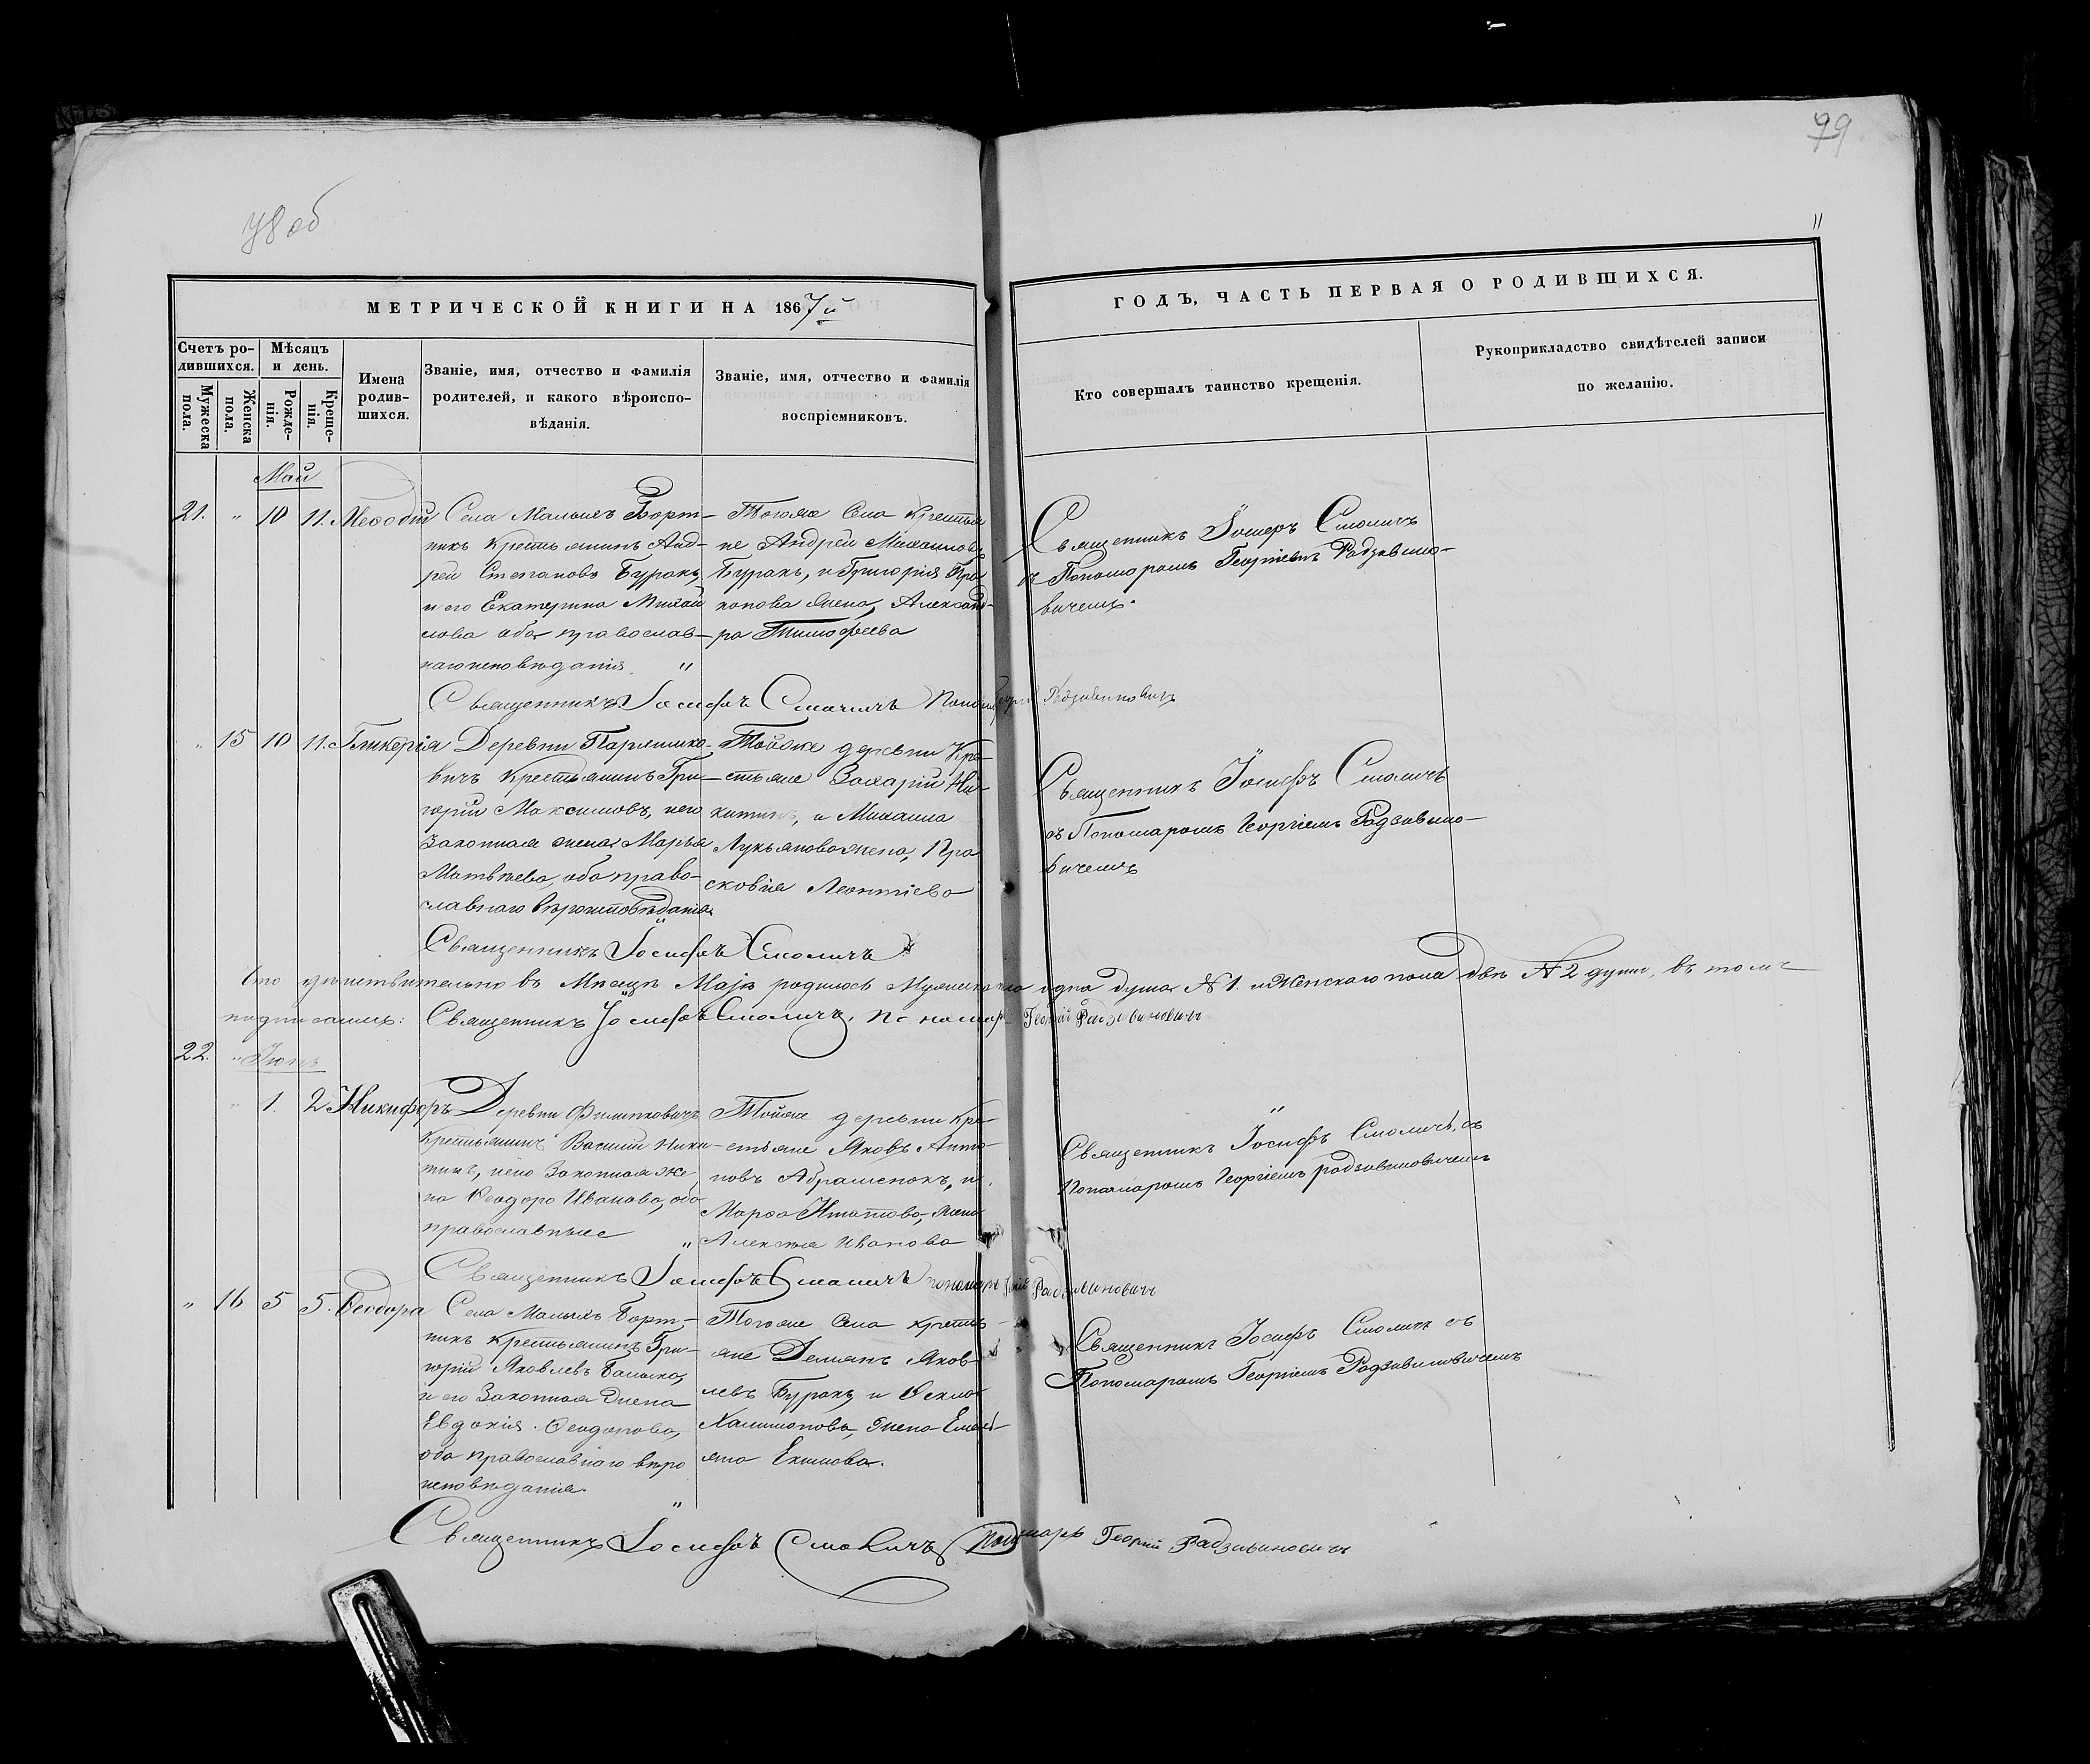 78 об
79
11
МЕТРИЧЕСКОЙ КНИГИ НА 1867й
ГОДЪ, ЧАСТЬ ПЕРВАЯ О РОДИВШИХСЯ.
Счетъ ро-
дившихся.
Мужеска
пола.
Женска
пола.
Мѣсяцъ
и день.
Рожде-
нія.
Креще-
нія.
Имена
родив-
шихся.
Званіе, имя, отчество и фамилія
родителей, и какого вѣроиспо-
вѣданія.
Званіе, имя, отчество и фамилія
воспріемниковъ.
Кто совершалъ таинство крещенія.
Рукоприкладство свидѣтелей записи
по желанію.
Май
21. " 10 11. Меѳодій
Села Малыхъ Борт-
никъ крестьянинъ Анд-
рей Степановъ Буракъ,
и его Екатерина Михай
лова оба православ-
наго исповѣданія. "
Тогоже Села Крестья
не Андрей Михаиловъ
Буракъ, и Григорія Про
копова жена, Александ-
ра Тимофеева
Священникъ Іосифъ Смоличъ
съ Пономаромъ Георгіемъ Радзивило-
вичемъ.
Священникъ Іосифъ Смоличъ Радзивиновичъ
" 15 10 11. Гликерія
Деревни
вичъ Крестьянинъ Гри-
горій Максимовъ, иего
Законная жена Марья
Матвѣева, оба право-
славнаго вѣроисповѣданія
Тойже деревни Кре-
стьяне Захарій Ни-
китинъ, и Михаила
Лукьянова жена, Пра
сковія Леонтіева
Священникъ Іосифъ Смоличъ
съ Пономаромъ Георгіемъ Радзивило-
вичемъ
Священникъ Іосифъ Смоличъ
Что дѣйствительно въ Мѣсяцѣ Маѣ родилось одна душа № 1. и Женскаго пола двѣ № 2 души, въ томъ
подписались: Священникъ Іосифъ Смоличъ, Пономарь Георгій Радзивиновичъ
22. " Іюнь
" 1. 2 Никифоръ
Деревни Филиповичъ
Крестьянинъ Василій Ники
тинъ, иего Законная же
на Ѳеодора Иванова, оба
православные "
Тойже деревни Кре
стьяне Яковъ Анто
новъ Абраменокъ, и
Марѳа Игнатова, жена
Алексѣя Иванова
Священникъ Іосифъ Смоличъ, съ
Пономаромъ Георгіемъ радзивиловичемъ
Священникъ Іосифъ Смоличъ пономарь Радзивиновичъ
" 16 5 5. Ѳеодора
Села Малыхъ Борт-
никъ Крестьянинъ Гри-
горій Яковлевъ
и его Законная Жена
Евдокія Ѳеодорова,
оба православнаго вѣро
исповѣданія. "
Тогоже Села крестья-
яне Демянъ Яков
левъ Буракъ, и Ѳекла
жена
Екимова.
Священникъ Іосифъ Смоличъ съ
Пономаромъ Георгіемъ Радзивиловичемъ
Священникъ Іосифъ Смоличъ Пономарь Георгій Радзивиновичъ